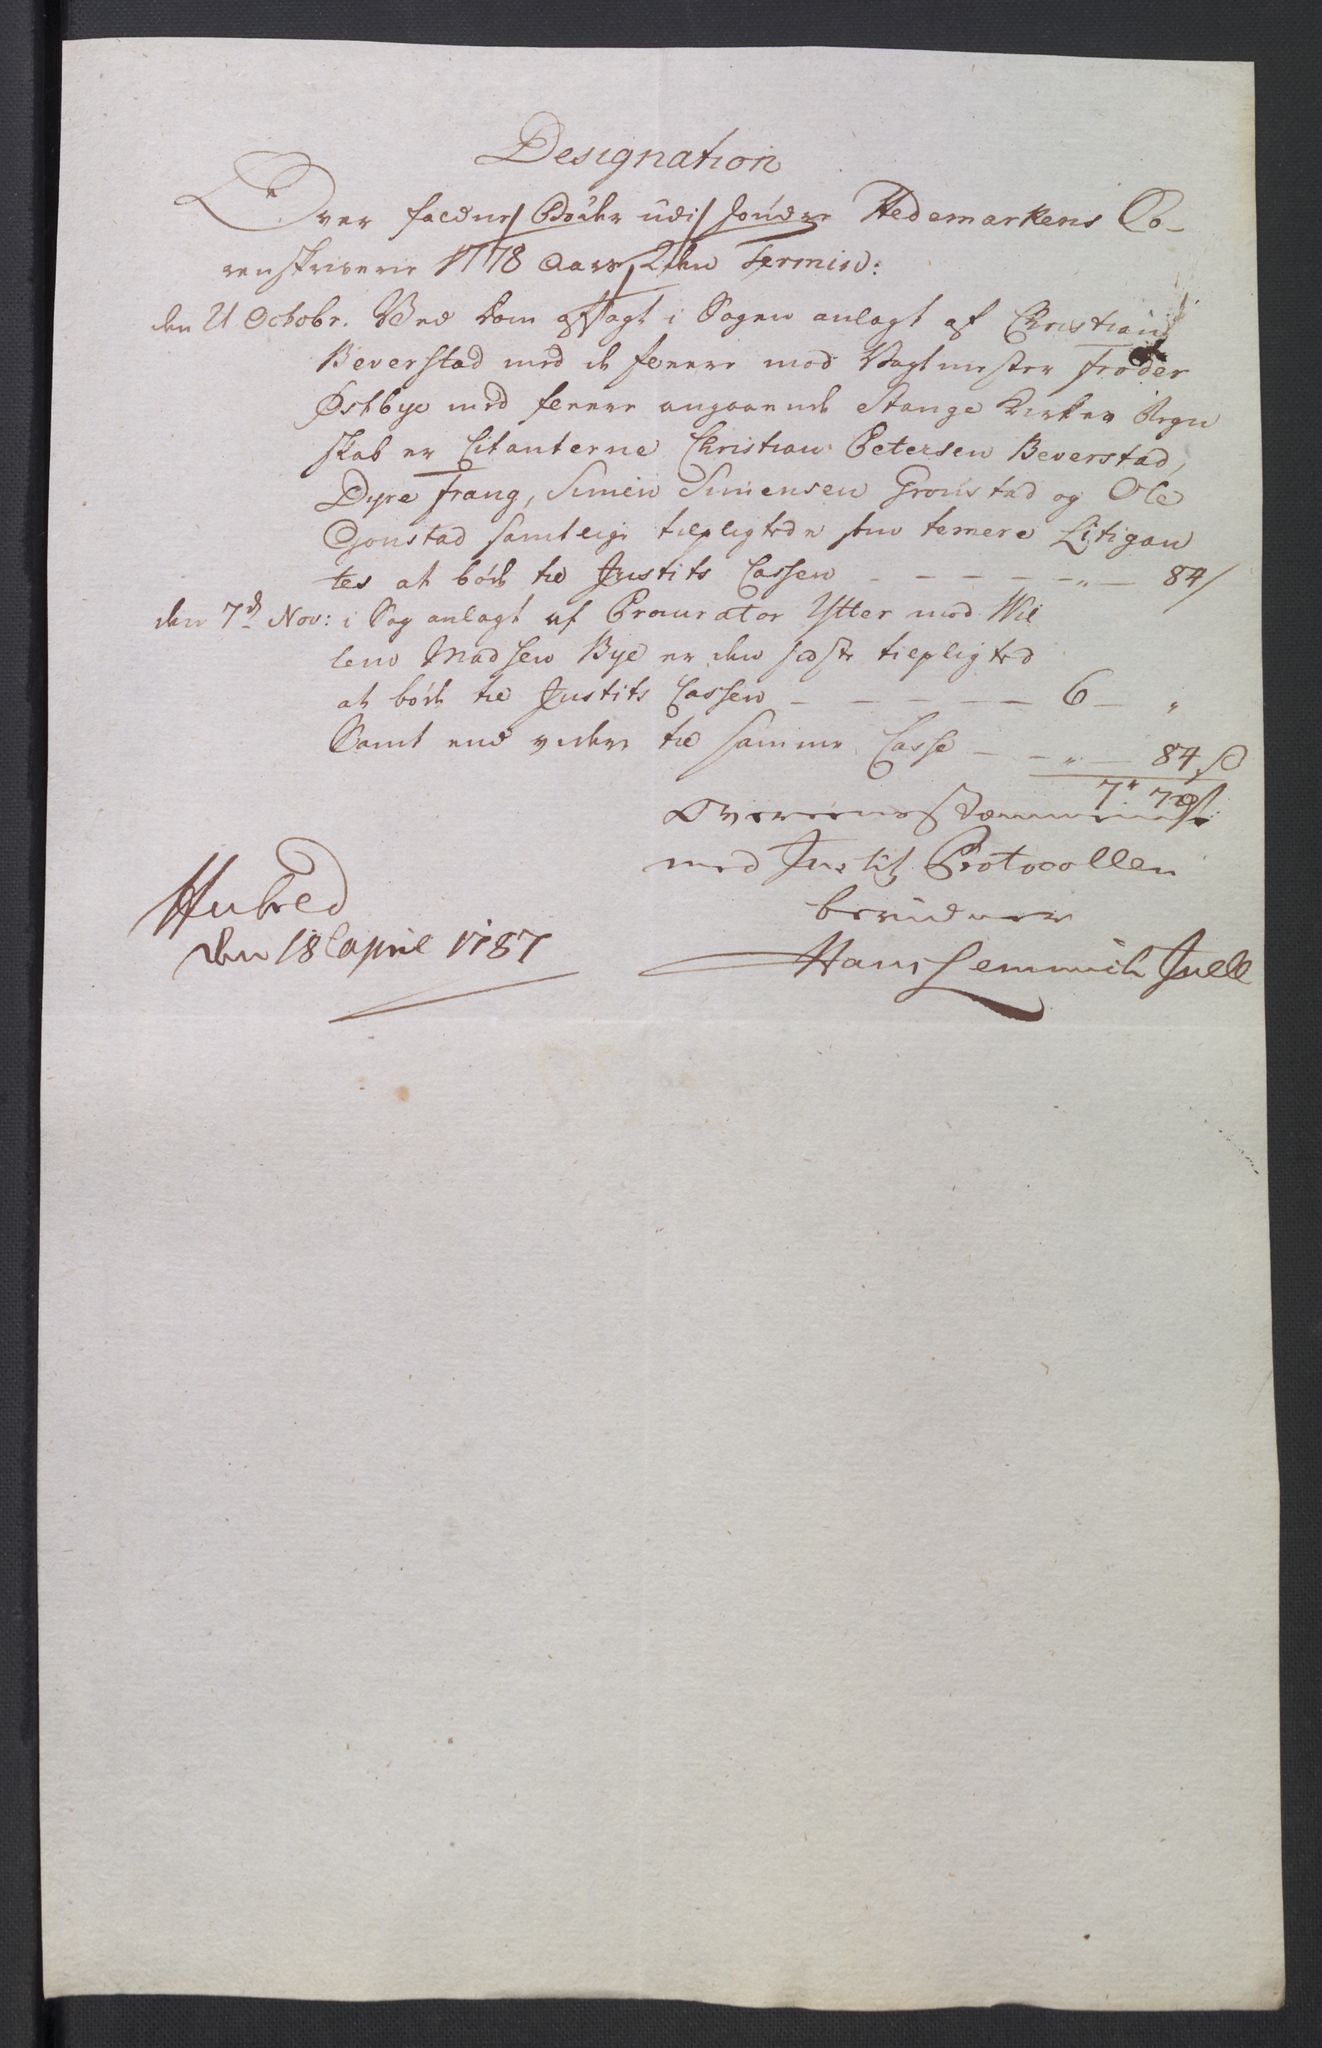 Designation
Over faldne Bøder udi søndre Hedemarkens So-
renskriverie 1778 Aars 2den Termin:
den 21 Octobr. Ved Dom afsagt i Sagen anlagt af Christian
Beverstad med de fleere mod Vagtmester Freder
Østbye med fleere angaaende Stange Kirkes Regn
skab er Citanterne Christian Petersen Beverstad,
Dyre Frang, Simen Simensen Gronstad og Ole
Gonstad samtlige tilpligtede som temere Litigan
tes at bøde til Justits Cassen — — — — — „ — 84 /
den 7d Nov: i Sag anlagt af Procurator Ytter mod Wil
lem Madsen Bye er den sidste tilpligted
at bøde til Justits Cassen — — — — — 6 — „
Samt end videre til samme Casse — — „ — 84 s
7" 72 s
Overeensstemmende
med Justits Protocollen
bevidner
Hans Lemmich Juell
Hubred
den 18 April 1787